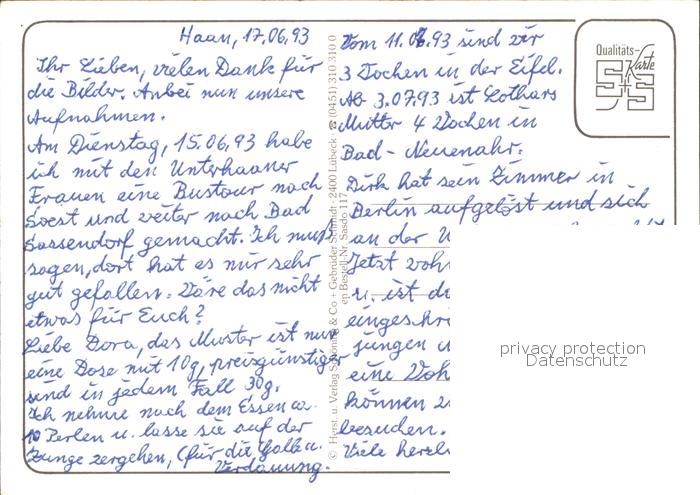 Haan, 17.06.93
Ihr Lieben, vielen Dank für
die Bilder. Anbei nun unsere
Aufnahmen.
Am Dienstag, 15.06.93 habe
ich mit den Unterhaaner
Frauen eine Bustour nach
Soest und weiter nach Bad
Sassendorf gemacht. Ich muß
sagen, dort hat es mir sehr
gut gefallen. Wäre das nicht
etwas für Euch?
Liebe Dora, das Muster ist nur
eine Dose mit 10g, preisgünstiger
sind in jedem Fall 30g.
Ich nehme nach dem Essen ca.
10 Perlen u. lasse sie auf der
Zunge zergehen, (für die Galle u.
Verdauung.
© Herst. u. Verlag Schöning & Co + Gebrüder Schmidt · 2400 Lübeck · ☎ (0451) 310 310 0
ep Bestell-Nr. Sasdo 117
Vom 11.06.93 sind wir
3 Wochen in der Eifel.
Ab 3.07.93 ist Lothars
Mutter 4 Wochen in
Bad-Neuenahr.
Dirk hat sein Zimmer in
Berlin aufgelöst und sich
an der
Jetzt
u. ist
jungen
eine
können
besuchen.
Viele
Qualitäts-
Karte
S+S
privacy protection
Datenschutz